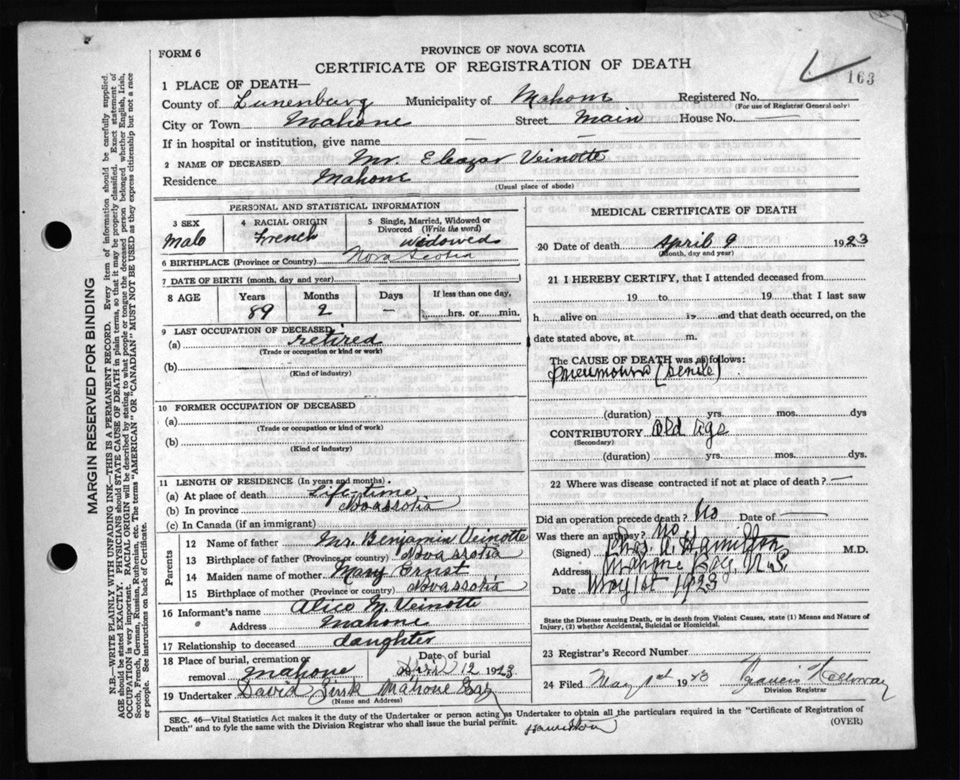 163
FORM 6
PROVINCE OF NOVA SCOTIA
CERTIFICATE OF REGISTRATION OF DEATH
MARGIN RESERVED FOR BINDING
N.B.—WRITE PLAINLY WITH UNFADING INK—THIS IS A PERMANENT RECORD. Every item of information should be carefully supplied.
AGE should be stated EXACTLY. PHYSICIANS should STATE CAUSE OF DEATH in plain terms, so that it may be properly classified. Exact statement of
OCCUPATION is very important. RACIAL ORIGIN will be described by stating to what people or tongue the deceased person belonged whether English, Irish,
Scotch, French, German, Russian, Ruthenian, etc. The terms "AMERICAN" OR "CANADIAN" MUST NOT BE USED as they express citizenship but not a race
or people. See instructions on back of Certificate.
1 PLACE OF DEATH—
County of Lunenburg Municipality of Mahone Registered No.
(For use of Registrar General only)
City or Town Mahone Street Main House No. —
If in hospital or institution, give name — —
2 NAME OF DECEASED Mr. Eleazar Veinotte
Residence Mahone
(Usual place of abode)
PERSONAL AND STATISTICAL INFORMATION
3 SEX Male
4 RACIAL ORIGIN French
5 Single, Married, Widowed or Divorced (Write the word) widowed
6 BIRTHPLACE (Province or Country) Nova Scotia
7 DATE OF BIRTH (month, day and year)
8 AGE Years Months Days If less than one day,
89 2 — hrs. or min.
9 LAST OCCUPATION OF DECEASED
(a) retired
(Trade or occupation or kind or work)
(b)
(Kind of industry)
10 FORMER OCCUPATION OF DECEASED
(a)
(Trade or occupation or kind of work)
(b)
(Kind of industry)
11 LENGTH OF RESIDENCE (In years and months).
(a) At place of death Life-time
(b) In province Novascotia
(c) In Canada (if an immigrant)
Parents
12 Name of father Mr. Benjamin Veinotte
13 Birthplace of father (Province or country) Novascotia
14 Maiden name of mother Mary Ernst
15 Birthplace of mother (Province or country) Novascotia
16 Informant's name Alice M. Veinotte
" Address Mahone
17 Relationship to deceased daughter
18 Place of burial, cremation or removal Mahone
Date of burial April 12 1923
19 Undertaker David Mahone Bay
(Name and Address)
MEDICAL CERTIFICATE OF DEATH
20 Date of death April 9 1923
(Month, day and year)
21 I HEREBY CERTIFY, that I attended deceased from
19 to 19 that I last saw
h alive on 19 and that death occurred, on the
date stated above, at m.
The CAUSE OF DEATH was as follows:
Pneumonia (Senile)
(duration) yrs. mos. dys
CONTRIBUTORY Old Age
(Secondary)
(duration) yrs. mos. dys.
22 Where was disease contracted if not at place of death? —
Did an operation precede death? No Date of —
Was there an autopsy? No
(Signed) Chas A. Hamilton M.D.
Address Mahone Bay N.S.
Date May 1st 1923
State the Disease causing Death, or in death from Violent Causes, state (1) Means and Nature of
Injury, (2) whether Accidental, Suicidal or Homicidal.
23 Registrar's Record Number
24 Filed May 1st 1923 Francis Holloway
Division Registrar
SEC. 46—Vital Statistics Act makes it the duty of the Undertaker or person acting as Undertaker to obtain all the particulars required in the "Certificate of Registration of
Death" and to fyle the same with the Division Registrar who shall issue the burial permit. Hamilton (OVER)